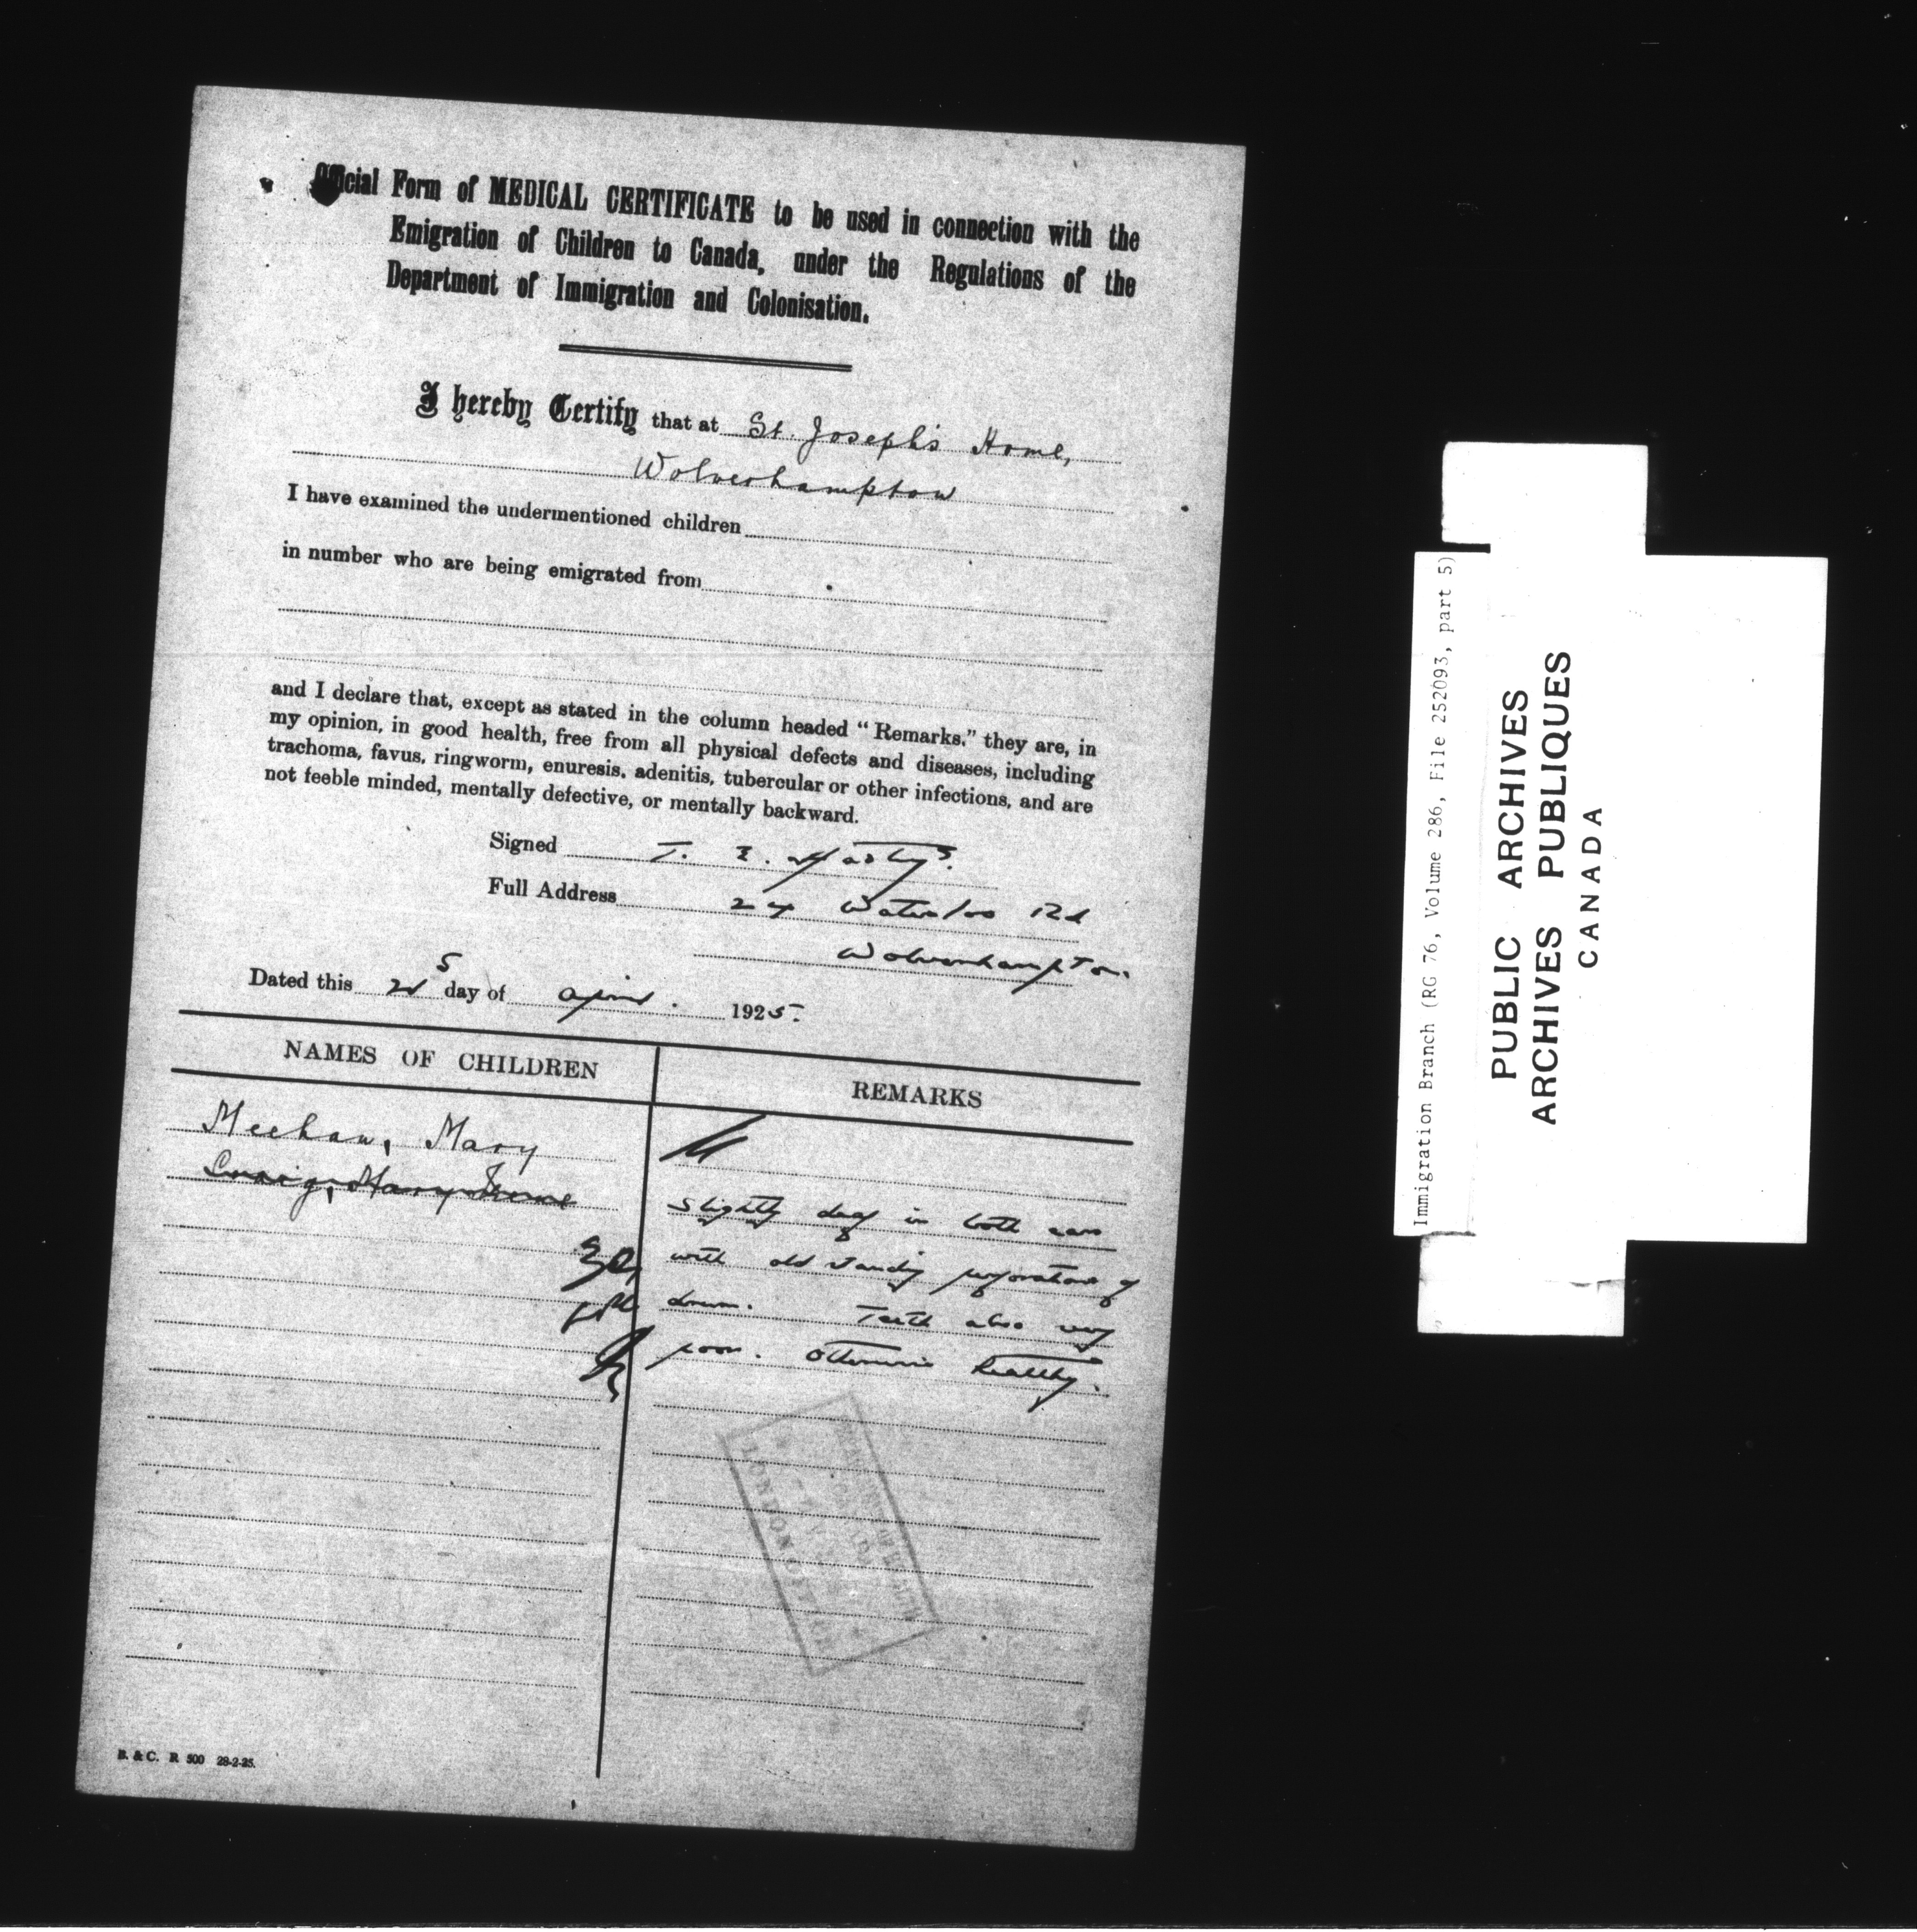 Official Form of MEDICAL CERTIFICATE to be used in connection with the
Emigration of Children to Canada, under the Regulations of the
Department of Immigration and Colonisation.
I hereby Certify that at St. Joseph's Home,
Wolverhampton
I have examined the undermentioned children
in number who are being emigrated from
and I declare that, except as stated in the column headed "Remarks." they are, in
my opinion, in good health, free from all physical defects and diseases, including
trachoma, favus, ringworm, enuresis, adenitis, tubercular or other infections, and are
not feeble minded, mentally defective, or mentally backward.
Signed T.
Full Address 24 Waterloo Rd
Wolverhampton.
Dated this day of April. 1925.
NAMES OF CHILDREN REMARKS
Meehan, Mary
Mary
Slightly deaf in both ears
with old standing perforations of
drum. Teeth also very
poor. Otherwise healthy.
DEPARTMENT OF HEALTH
LONDON OFFICE
B. & C. R 500 28-2-25.
Immigration Branch (RG 76, Volume 286, File 252093, part 5)
PUBLIC ARCHIVES
ARCHIVES PUBLIQUES
CANADA